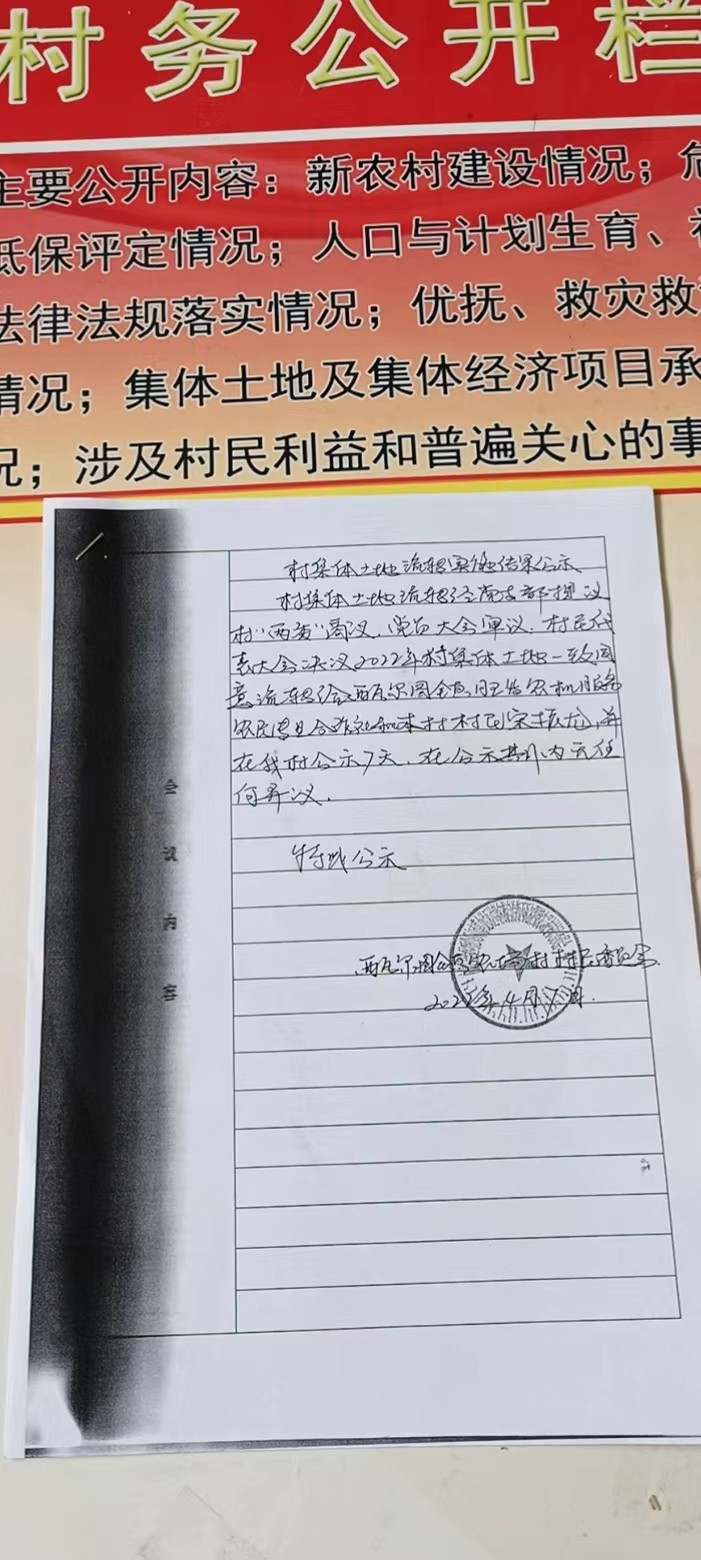 村务公开栏
主要公开内容：新农村建设情况；危
低保评定情况；人口与计划生育、
法律法规落实情况；优抚、救灾救
情况；集体土地及集体经济项目承
况；涉及村民利益和普遍关心的事
村集体土地流转实施结果公示
村集体土地流转经党支部提议
村"两委"商议，党员大会审议，村民代
表大会决议2022年村集体土地一致同
意流转给西瓦尔图全
农民专业合作社和本村村民宋振龙，并
在我村公示7天，在公示期内无任
何异议．
特此公示
西瓦尔图 村村民委员会
2022年4月
会
议
内
容